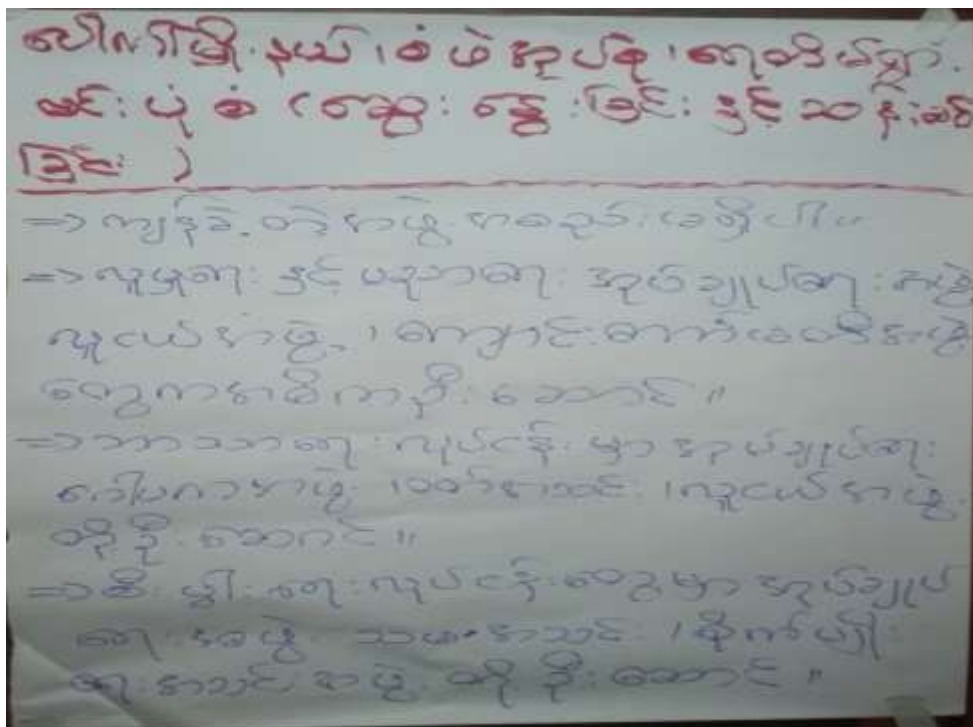 ပေါက်မြို့နယ်၊ စံဖဲအုပ်စု၊ ရေတိမ်ရွာ
မင်းပုံစံ (ဆွေးနွေးခြင်းနှင့်သန်းစစ်
ခြင်း)
=> ကျန်ခဲ့တဲ့အဖွဲ့အစည်းမရှိပါ။
=> လူမှုရေးနှင့်ပညာရေး အုပ်ချုပ်ရေးအဖွဲ့
လူငယ်အဖွဲ့၊ ကျောင်းကော်မတီအဖွဲ့
တွေကအဓိကဦးဆောင်။
=> ဘာသာရေးလုပ်ငန်းမှာ အုပ်ချုပ်ရေး
ဂေါပကအဖွဲ့၊ ဝတ်အသင်း၊ လူငယ်အဖွဲ့
တို့ဦးဆောင်။
=> စီးပွါးရေးလုပ်ငန်းတွေမှာ အုပ်ချုပ်
ရေးအဖွဲ့ သမအသင်း၊ စိုက်ပျိုး
ရေးအသင်းအဖွဲ့တို့ဦးဆောင်။